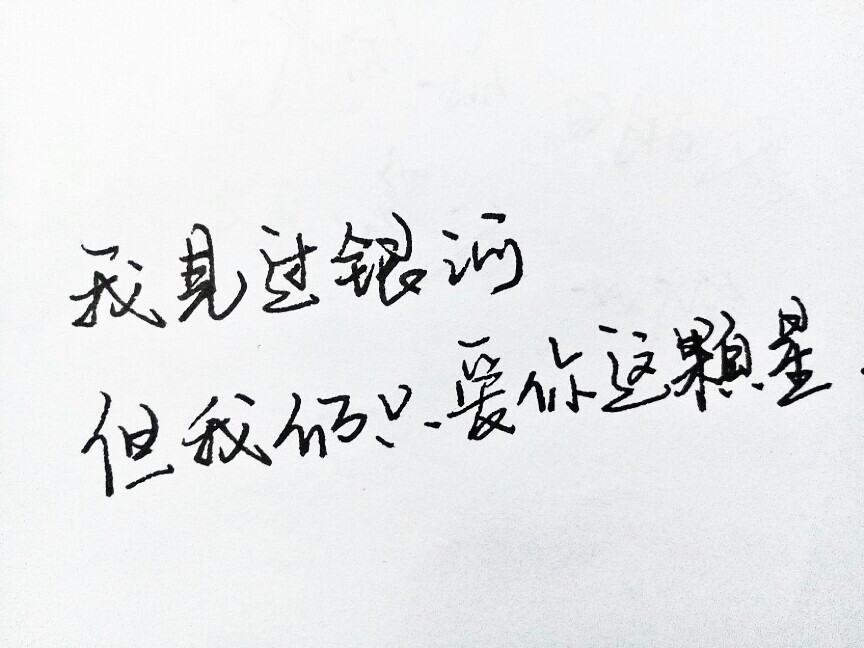 我见过银河
但我仍只爱你这颗星.